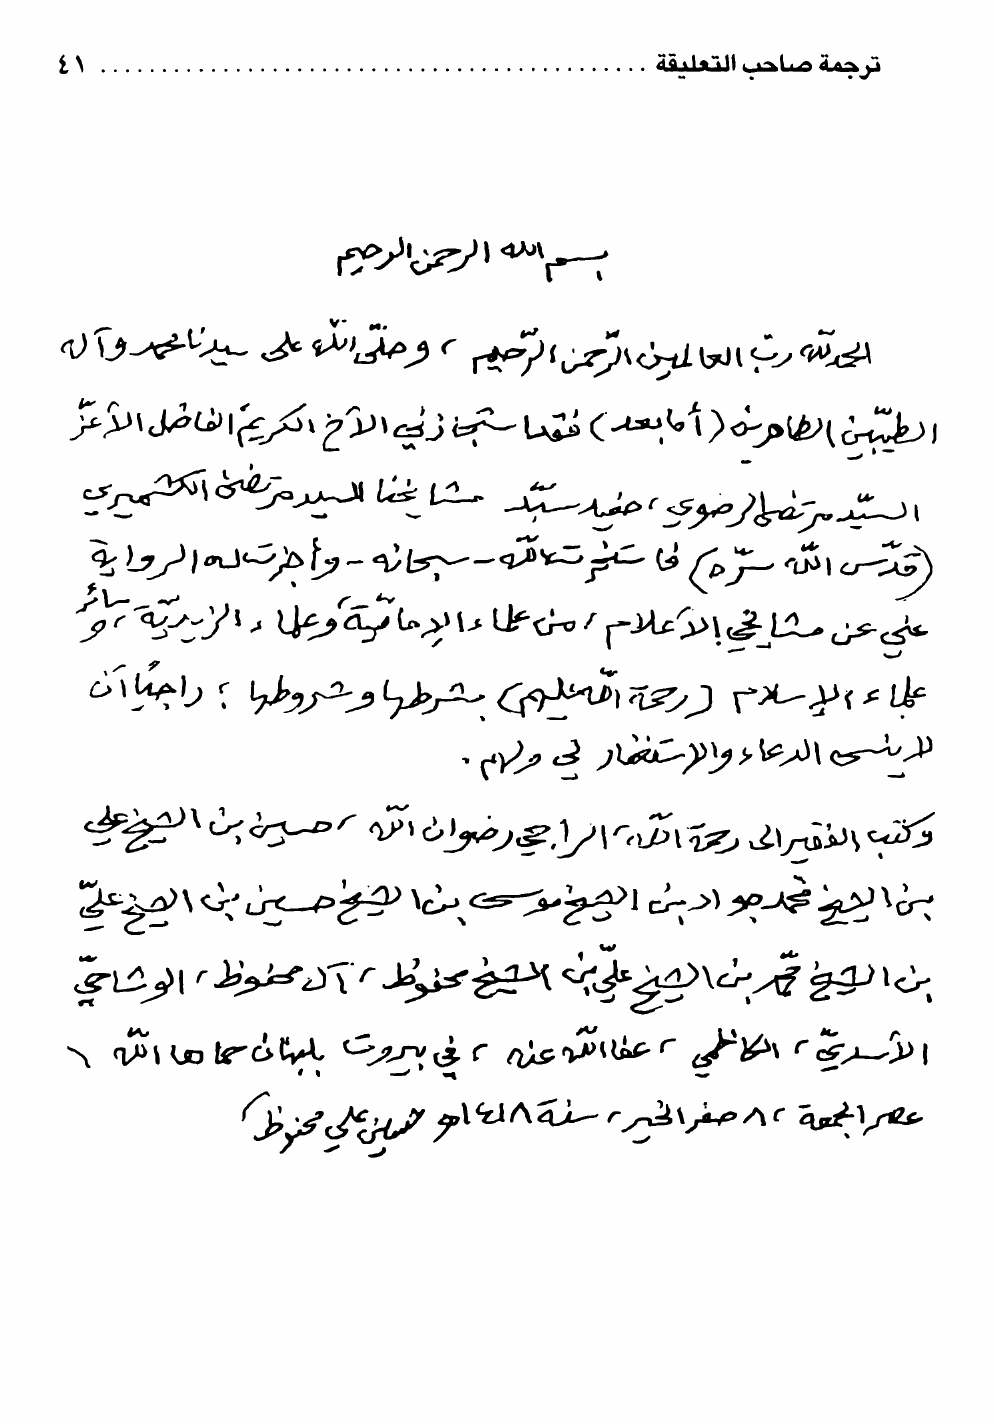 ترجمة صاحب التعليقة ............................................. ٤١
بسم الله الرحمن الرحيم
الحمد لله ربّ العالمين الرّحمن الرّحيم ، وصلّى الله على سيدنا محمد وآله
الطيّبين الطاهرين (أما بعد) فقد استجازني الأخ الكريم الفاضل الأعزّ
السيّد مرتضى الرضوي ، حفيد سيّد مشايخنا السيد مرتضى الكشميري
(قدّس الله سرّه) فاستخرت الله - سبحانه - وأجزت له الرواية
عني عن مشايخي الأعلام ، من علماء الإماميّة ، وعلماء الزيديّة ، وسائر
علماء الإسلام (رحمة الله عليهم) بشرطها وشروطها ؛ راجياً أن
لا ينسى الدعاء والاستغفار لي ولهم .
وكتب الفقير إلى رحمة الله ، الراجي رضوان الله ، حسين بن الشيخ علي
بن الشيخ محمد جواد بن الشيخ موسى بن الشيخ حسين بن الشيخ عليّ
بن الشيخ محمّد بن الشيخ عليّ بن الشيخ محفوظ ، آل محفوظ ، الوشاحيّ
الأسديّ ، الكاظمي ، عفا الله عنه ، في بيروت بلبنان حماها الله
عصر الجمعة ، ٨ صفر الخير ، سنة ١٤١٨هـ حسين علي محفوظ